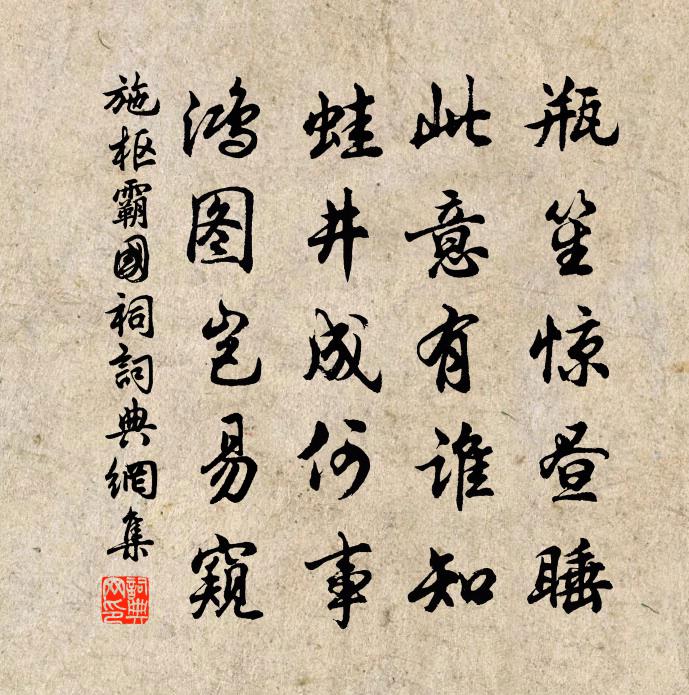 瓶笙惊昼睡
此意有谁知
蛙井成何事
鸿图岂易窥
施枢霸國祠詞典網集
詞典网印